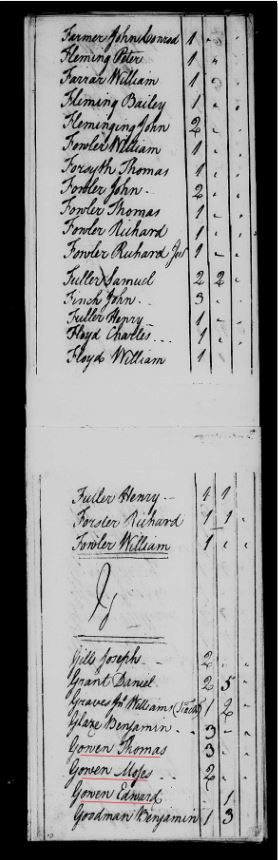 Farmer John Conrad 1 " "
Fleming Peter 1 " "
Farrar William 1 " "
Fliming Bailey 1 " "
Fleminging John 2 " "
Fowler William 1 " "
Forsyth Thomas 1 " "
Fowler John 2 " "
Fowler Thomas 1 " "
Fowler Richard 1 " "
Fowler Richard Jur 1 " "
Fuller Samuel 2 2 "
Finch John 3 " "
Fuller Henry 1 " "
Floyd Charles 1 " "
Floyd William 1 "
Fuller Henry 1 1
Forster Richard 1 1 "
Fowler William 1 " "
G
Gill Joseph 2 " "
Grant Daniel 2 5 "
Graves Jno Williams 1 2 "
Glaze Benjamin 3 - "
Gowen Thomas 3 " "
Gowen Moses 2 " "
Gowen Edward 1
Goodman Benjamin 1 3